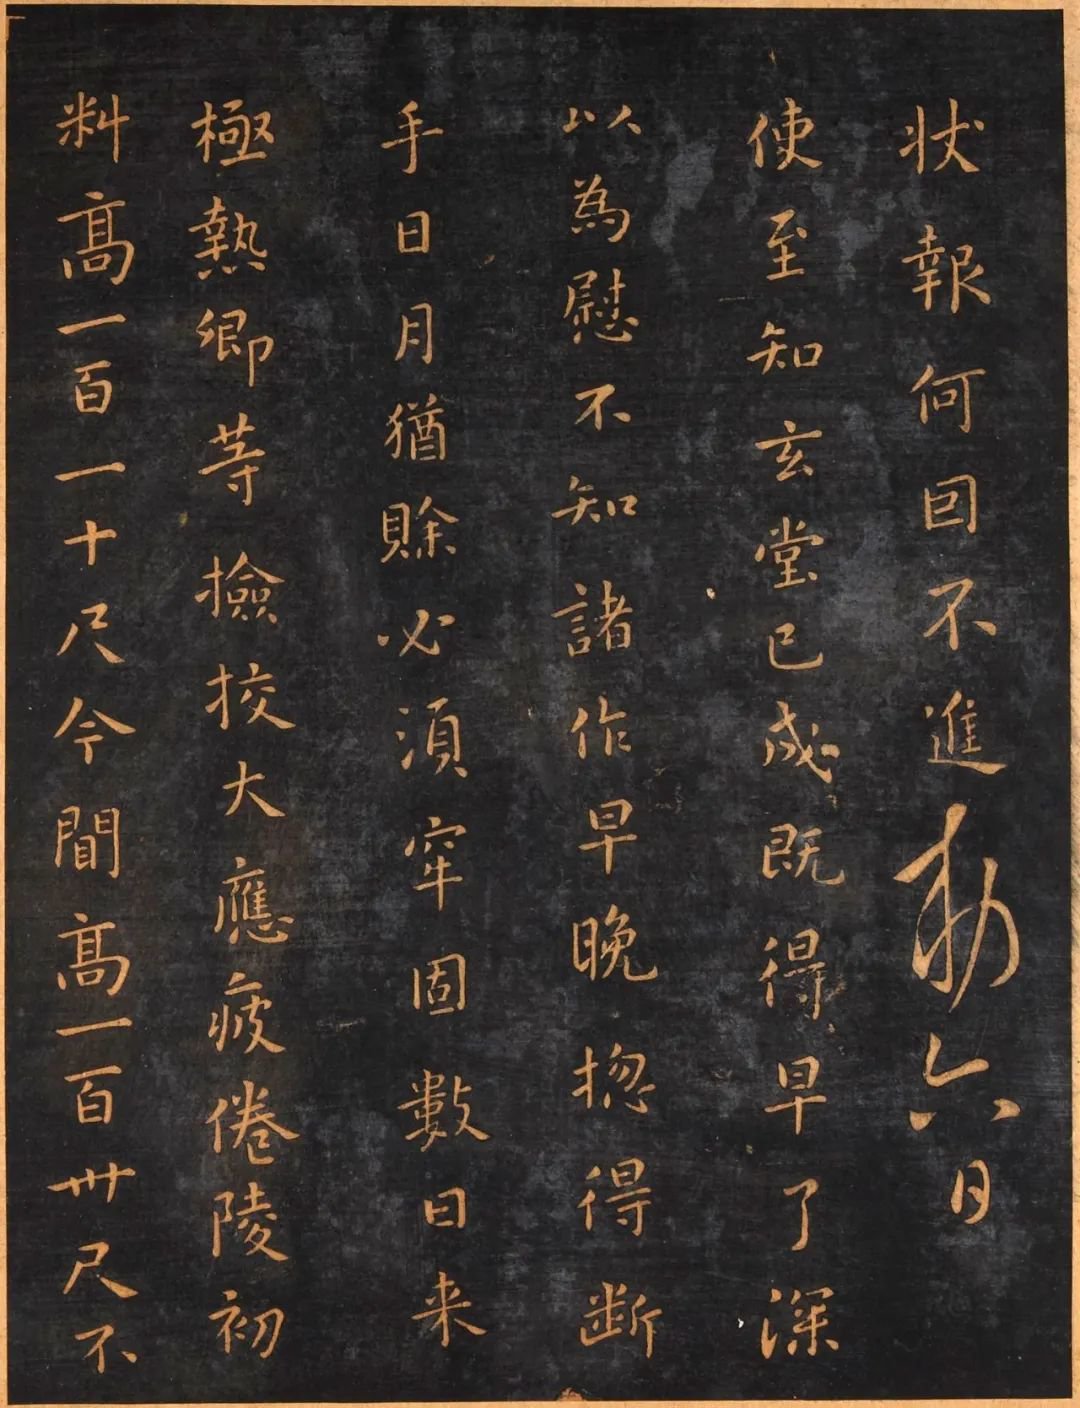 状報何囙不進勅六日
使至知玄堂已成既得早了深
以為慰不知諸作早晚捴得断
手日月猶賒必湏牢固數日来
極熱卿等撿挍大應疲倦陵初
料髙一百一十尺今聞髙一百卌尺不